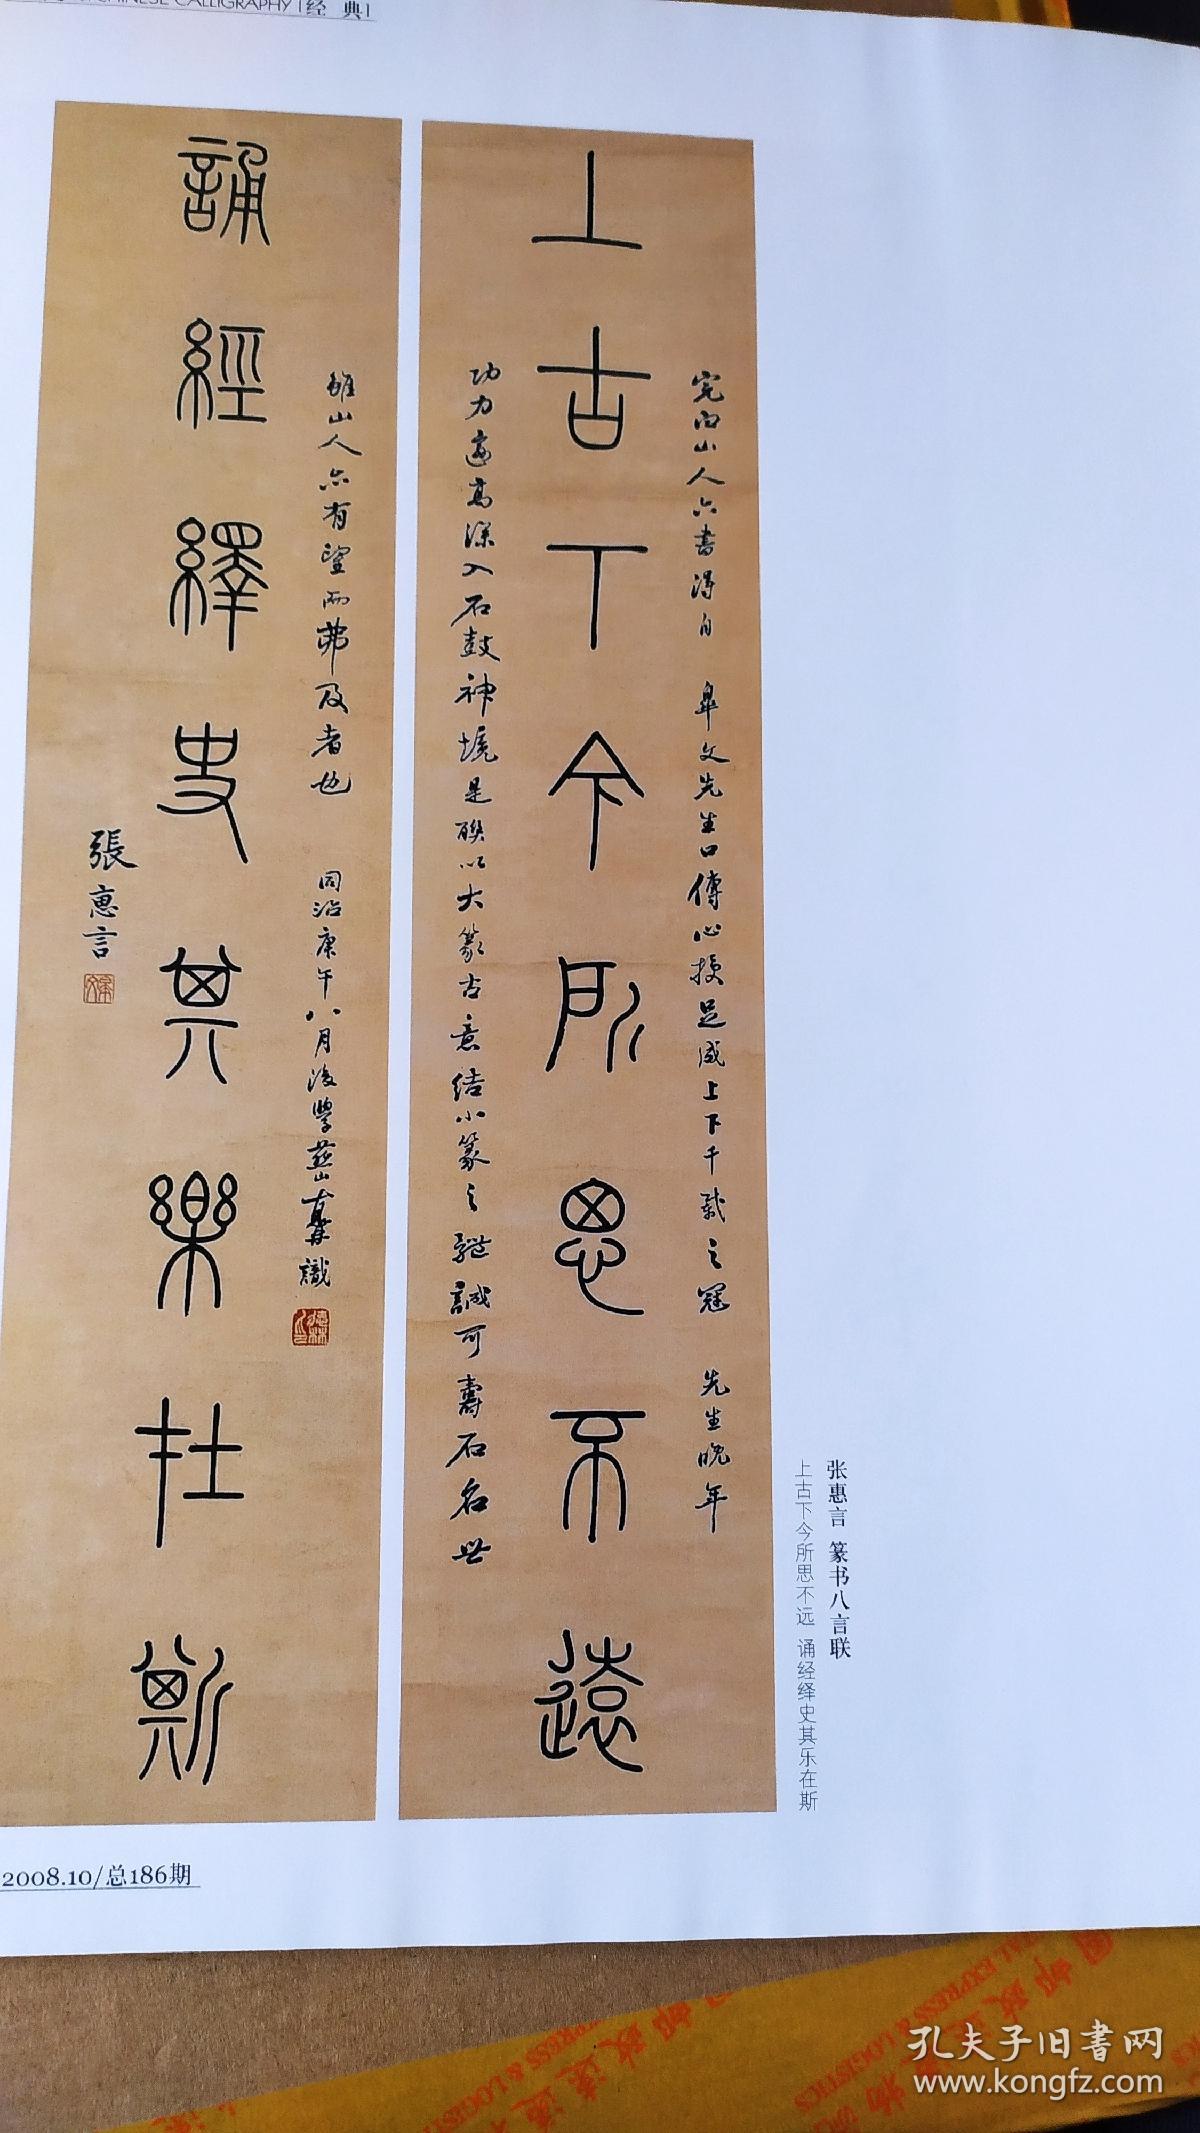 CHINESE CALLIGRAPHY |经 典|
上古丅今所思不遠
完白山人六書得自 皋文先生口傳心授足咸上下千載之冠 先生晚年
功力益高深入石鼓神境是聯以大篆古意結小篆之 誠可壽石名世
誦經繹史其樂在斯
山人亦有望而弗及者也 同治庚午八月後學 識
張惠言
张惠言 篆书八言联
上古下今所思不远 诵经绎史其乐在斯
2008.10/总186期
孔夫子旧书网
www.kongfz.com